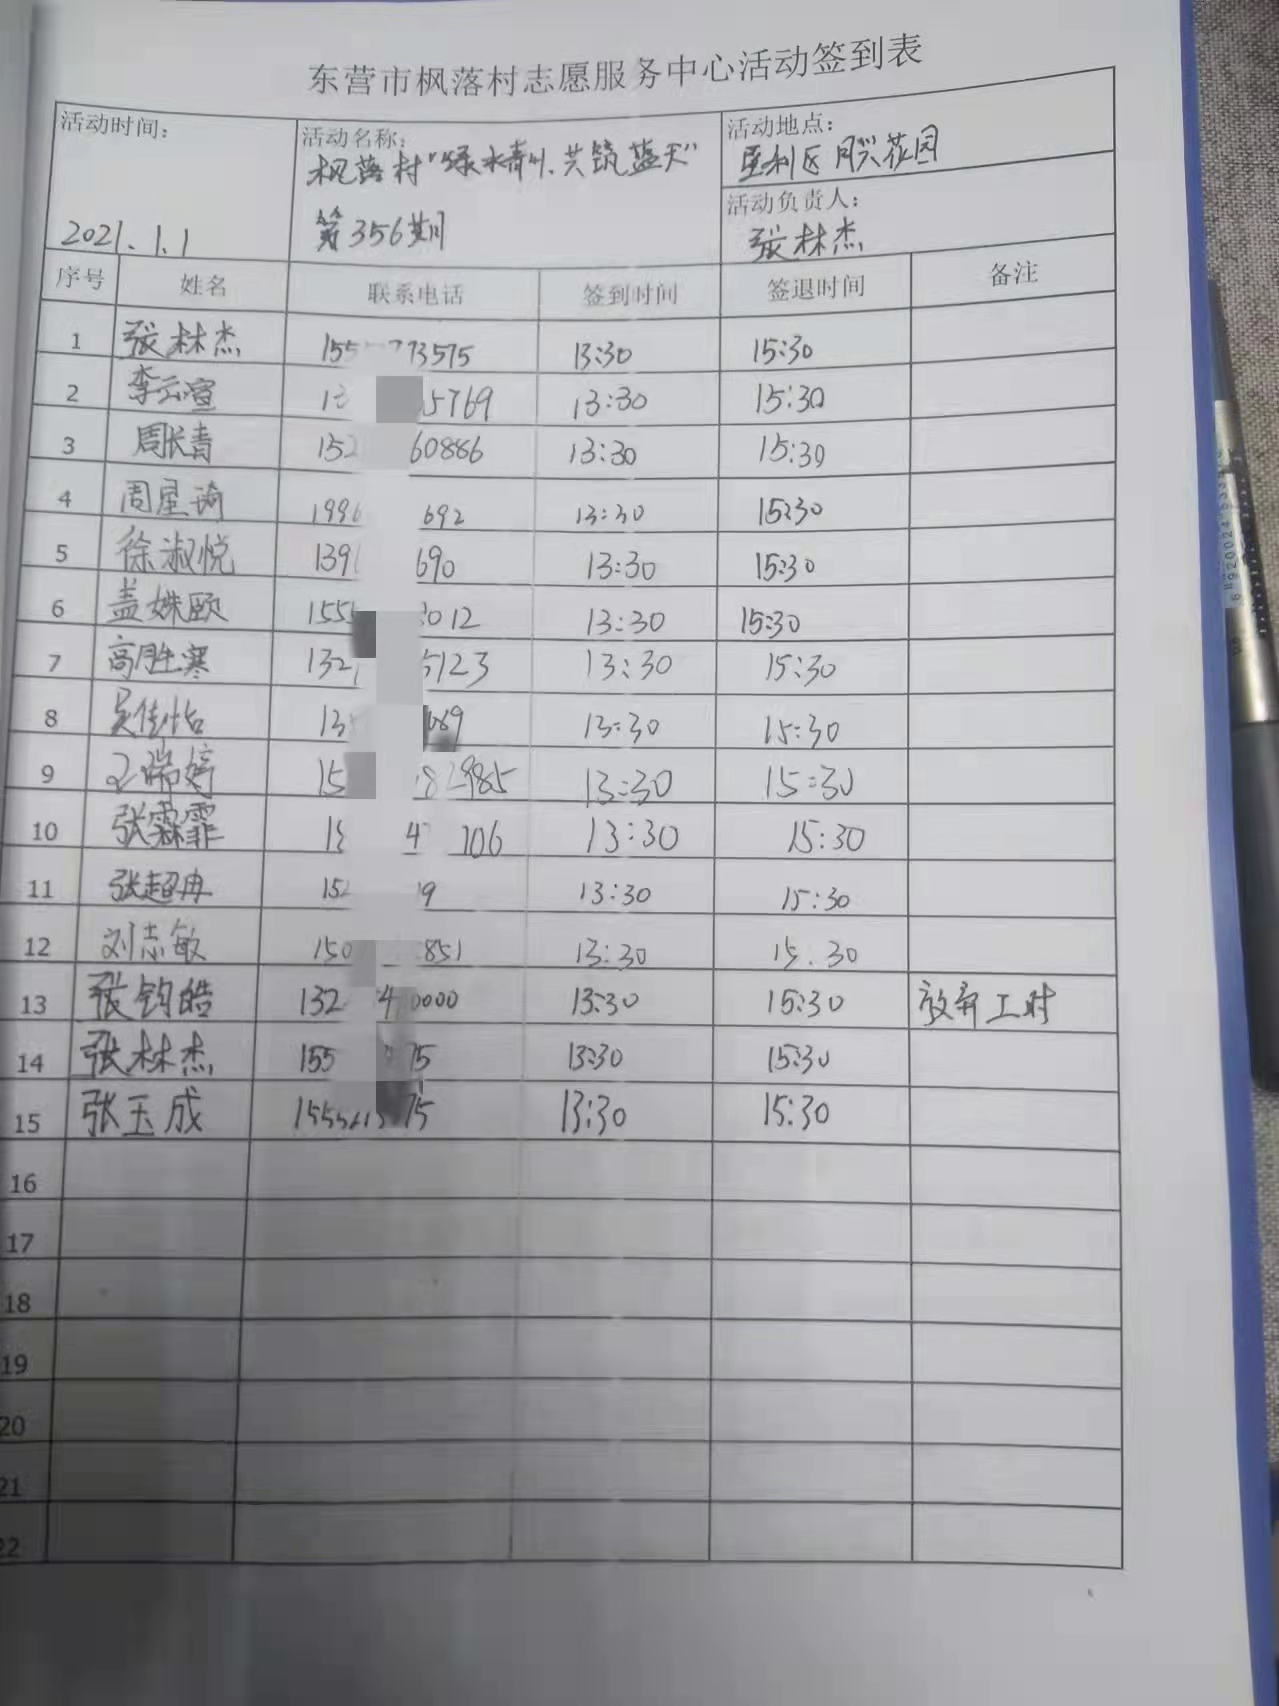 东营市枫落村志愿服务中心活动签到表
活动时间： 活动名称： 活动地点：
枫落村"绿水青山、共筑蓝天" 垦利区 同兴花园
活动负责人：
2021.1.1 第356期 张林杰
序号 姓名 联系电话 签到时间 签退时间 备注
1 张林杰 155 73575 13:30 15:30
2 李云瑄 13 5769 13:30 15:30
3 周长青 152 60886 13:30 15:30
4 周星琦 1996 692 13:30 15:30
5 徐淑悦 139 690 13:30 15:30
6 盖姝颐 155 012 13:30 15:30
7 高胜寒 132 5123 13:30 15:30
8 吴佳怡 13 069 13:30 15:30
9 王瑞婷 15 82985 13:30 15:30
10 张霖霏 4 106 13:30 15:30
11 张超冉 152 9 13:30 15:30
12 刘志敏 150 851 13:30 15:30
13 张钧皓 132 4 0000 13:30 15:30 放弃工时
14 张林杰 155 75 13:30 15:30
15 张玉成 155 75 13:30 15:30
16
17
18
19
20
21
22